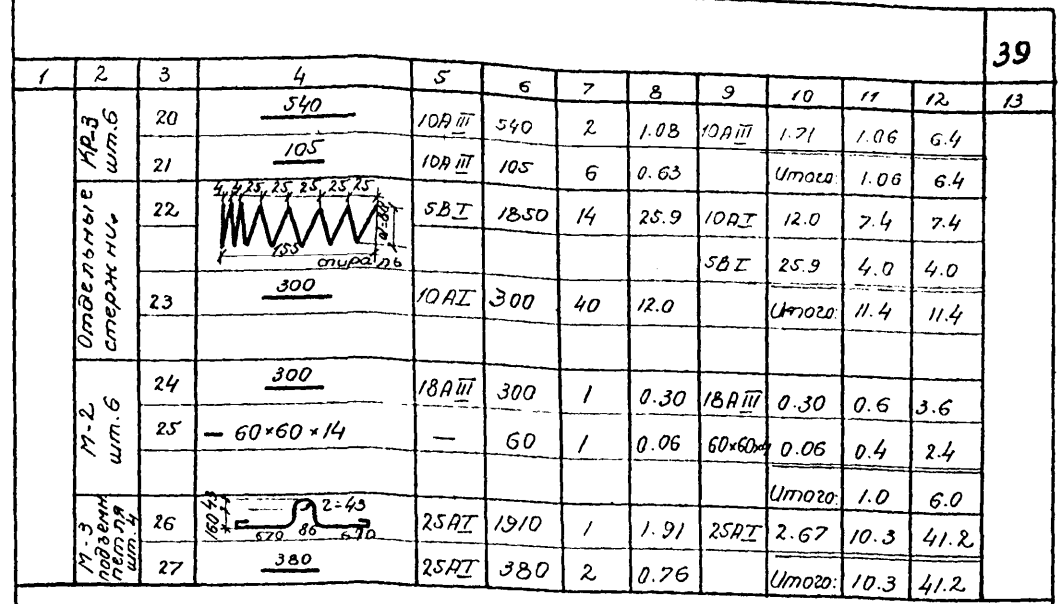 39
1 2 3 4 5 6 7 8 9 10 11 12 13
КР-3 шт.6
20 540 10АIII 540 2 1.08 10АIII 1.71 1.06 6.4
21 105 10АIII 105 6 0.63 Итого: 1.06 6.4
Отдельные стержни.
4 4 25 25 25 25 25
22 5ВI 1850 14 25.9 10АI 12.0 7.4 7.4
155 d=80
спираль
5ВI 25.9 4.0 4.0
23 300 10АI 300 40 12.0 Итого: 11.4 11.4
М-2 шт.6
24 300 18АIII 300 1 0.30 18АIII 0.30 0.6 3.6
25 – 60×60×14 — 60 1 0.06 60×60×4 0.06 0.4 2.4
Итого: 1.0 6.0
М-3 подъемн петля шт.4
160 43 r=43
26 670 86 670 25АI 1910 1 1.91 25АI 2.67 10.3 41.2
27 380 25АI 380 2 0.76 Итого: 10.3 41.2